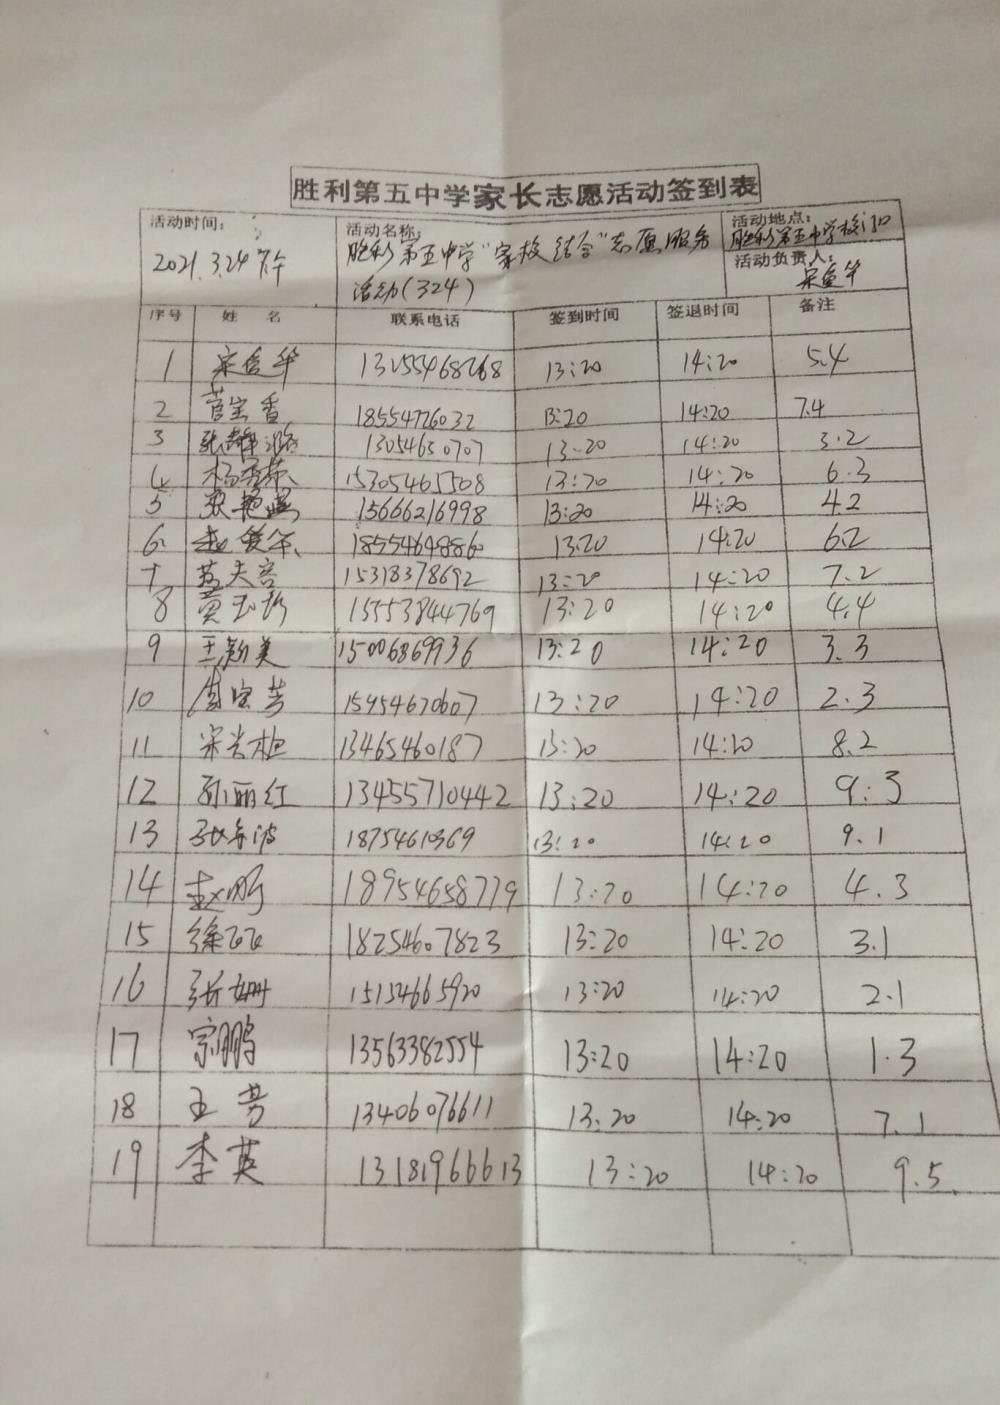 胜利第五中学家长志愿活动签到表
活动时间:
2021.3.24 下午
活动名称:
胜利第五中学"家校结合"志愿服务
活动(324)
活动地点:
胜利第五中学校门口
活动负责人:
宋 华
序号 姓 名 联系电话 签到时间 签退时间 备注
1 宋 华 13255468268 13:20 14:20 5.4
2 宝香 18554726032 13:20 14:20 7.4
3 张静 13054650707 13:20 14:20 3.2
4 杨秀荣 15305465508 13:20 14:20 6.3
5 艳 15666216998 13:20 14:20 4.2
6 赵 18554648860 13:20 14:20 6.2
7 15318378692 13:20 14:20 7.2
8 黄玉珍 15553844769 13:20 14:20 4.4
9 王新美 15006869936 13:20 14:20 3.3
10 周宝芳 15954670607 13:20 14:20 2.3
11 宋 13465460187 13:20 14:20 8.2
12 孙丽红 13455710442 13:20 14:20 9:3
13 波 18754610369 13:20 14:20 9.1
14 赵 18954658779 13:20 14:20 4.3
15 徐飞飞 18254607823 13:20 14:20 3.1
16 张姗 15154665920 13:20 14:20 2.1
17 宗鹏 13563382554 13:20 14:20 1.3
18 王芳 13406076611 13:20 14:20 7.1
19 李英 13181966613 13:20 14:20 9.5